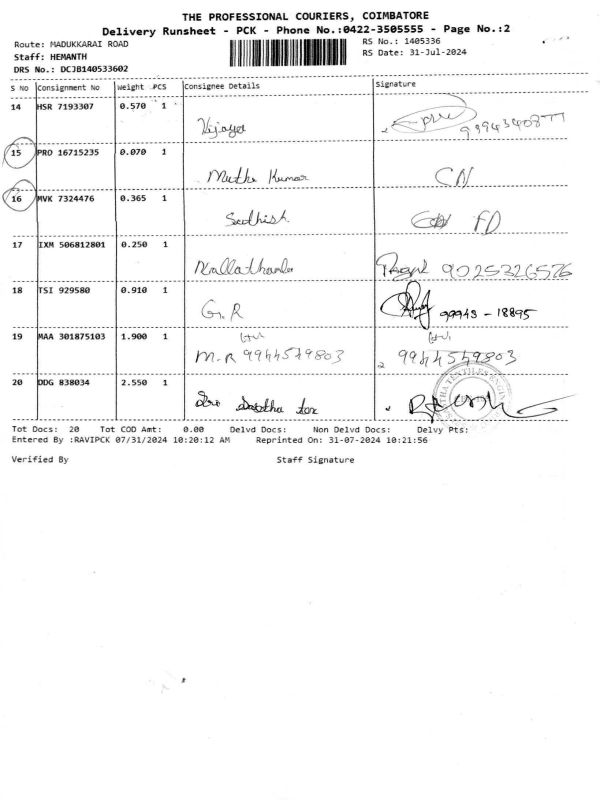 THE PROFESSIONAL COURIERS, COIMBATORE
Delivery Runsheet - PCK - Phone No.:0422-3505555 - Page No.:2
Route: MADUKKARAI ROAD RS No.: 1405336
Staff: HEMANTH RS Date: 31-Jul-2024
DRS No.: DCJB140533602
S No Consignment No Weight PCS Consignee Details Signature
14 HSR 7193307 0.570 1
Vijaya 9994340877
15 PRO 16715235 0.070 1
Muthu Kumar CN
16 MVK 7324476 0.365 1
Sathish FD
17 IXM 506812801 0.250 1
9025326576
18 TSI 929580 0.910 1
G.R 99943-18895
19 MAA 301875103 1.900 1
M.R 9944549803 9944549803
20 DDG 838034 2.550 1
Sri
Tot Docs: 20 Tot COD Amt: 0.00 Delvd Docs: Non Delvd Docs: Delvy Pts:
Entered By :RAVIPCK 07/31/2024 10:20:12 AM Reprinted On: 31-07-2024 10:21:56
Verified By Staff Signature